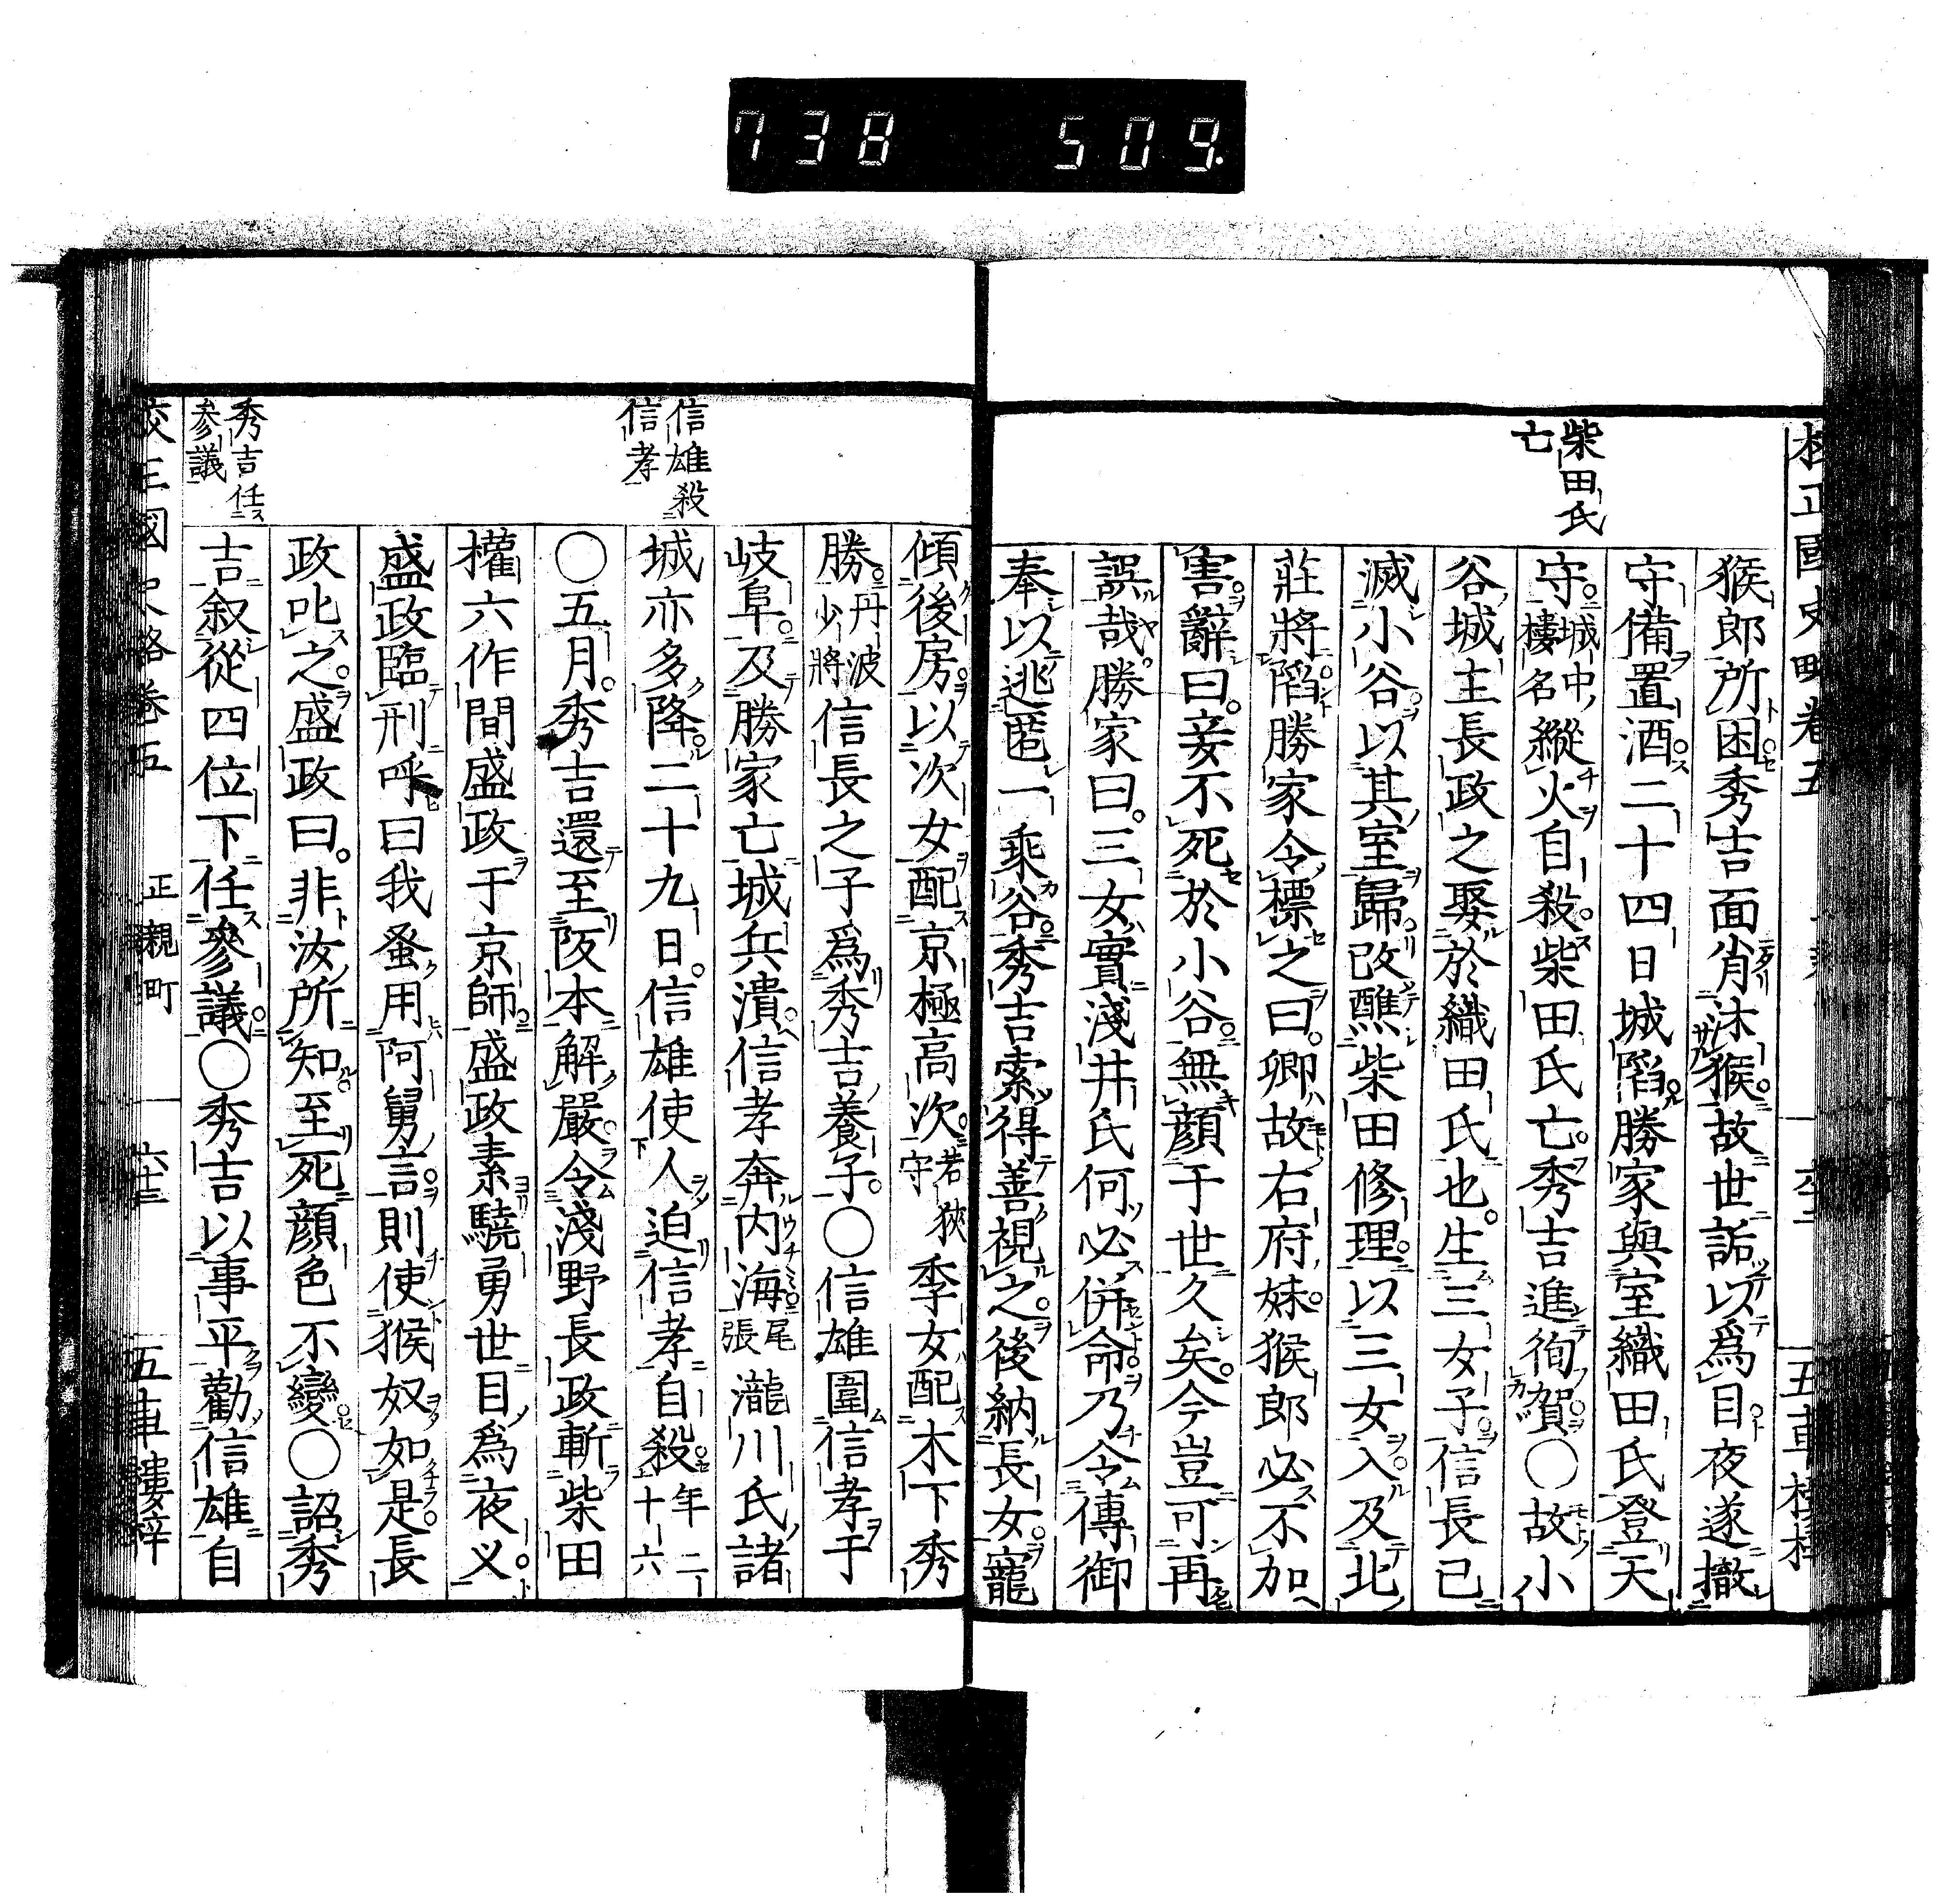 738 509.
校正國史略卷五
五車樓梓
柴田氏
亡
猴郎所困秀吉面肖沐猴故世詬以爲目夜遂撤
守備置酒二十四日城陷勝家與室織田氏登天
守城中樓名縱火自殺柴田氏亡秀吉進徇賀○故小
谷城主長政之娶於織田氏也生三女子信長已
滅小谷以其室歸改醮柴田修理以三女入及北
莊將陷勝家令標之曰卿故右府妹猴郎必不加
害辭曰妾不死於小谷無顔于世久矣今豈可再
誤哉勝家曰三女實淺井氏何必併命乃令傳御
奉以逃匿一乘谷秀吉索得善視之後納長女寵
信雄殺
信孝
秀吉任
參議
傾後房以次女配京極高次若狹守季女配木下秀
勝丹波少將信長之子爲秀吉養子○信雄圍信孝于
岐阜及勝家亡城兵潰信孝奔内海尾張瀧川氏諸
城亦多降二十九日信雄使人迫信孝自殺年二十六
○五月秀吉還至阪本解嚴令淺野長政斬柴田
權六作間盛政于京師盛政素驍勇世目爲夜叉
盛政臨刑呼曰我蚤用阿舅言則使猴奴如是長
政叱之盛政曰非汝所知至死顔色不變○詔秀
吉叙從四位下任參議○秀吉以事平勸信雄自
校正國史略卷五
正親町
六十三
五車樓梓